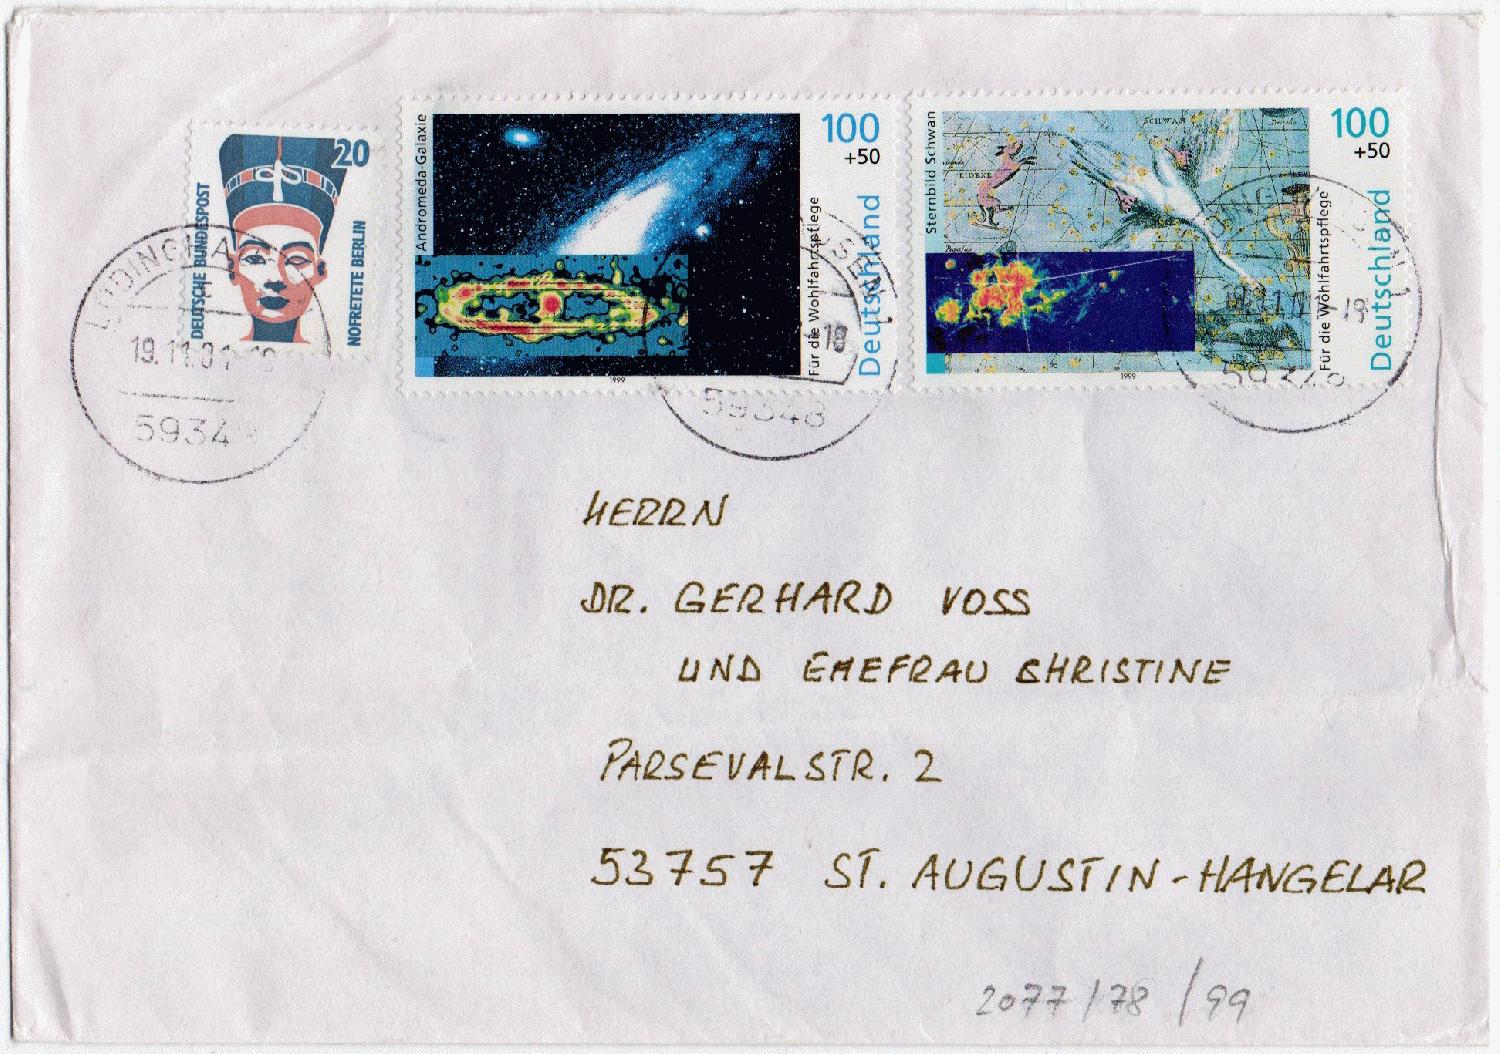 DEUTSCHE BUNDESPOST
20
NOFRETETE BERLIN
Andromeda-Galaxie
100
+50
Für die Wohlfahrtspflege
Deutschland
1999
Sternbild Schwan
SCHWAN
EIDEXE
100
+50
Für die Wohlfahrtspflege
Deutschland
1999
19.11.01-18
5934
-18
59348
-18
59348
HERRN
DR. GERHARD VOSS
UND EHEFRAU CHRISTINE
PARSEVALSTR. 2
53757 ST. AUGUSTIN-HANGELAR
2077/78/99